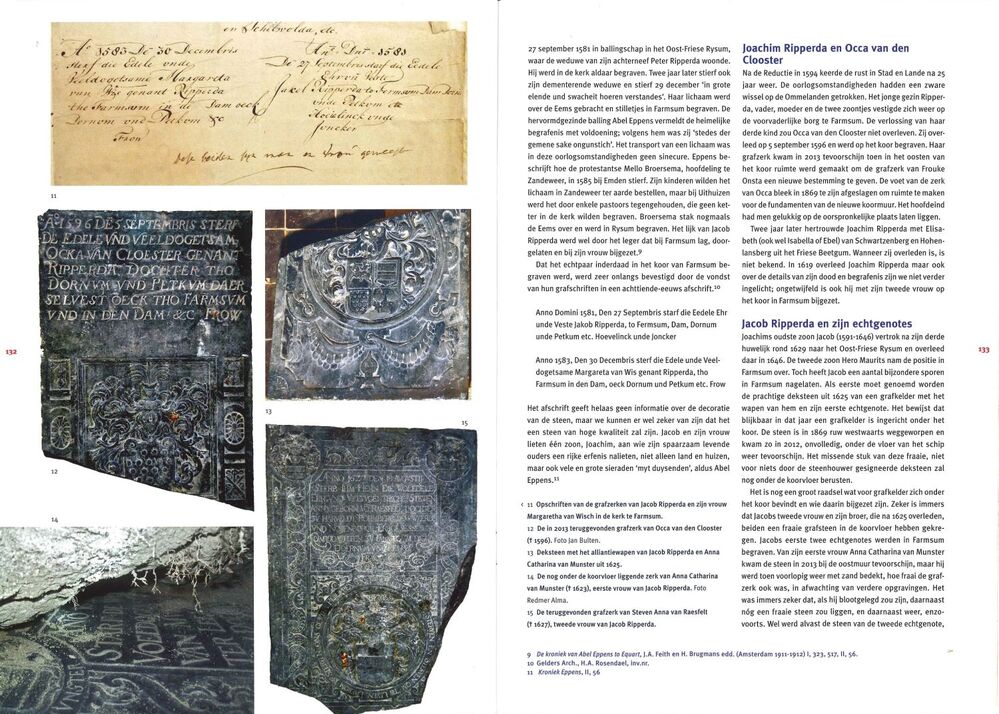 en Scheltwolda, etc.
Aº 1583 Dē 30 Decembris
sterf die Edele vnde
Veeldogetsame Margareta
van Wys genant Ripperda
tho Farmsum in de Dam oeck
Dornom vnd Petkom &c
Frow
Aº. Dnⁱ. 1581
De 27 Septembris starf die Eedele
Jakol Ripperda to Fermsum Dam Dornum
vnde Petkom etc
Hovelinck vnde
Joncker
11
Aº 1596 DE 5 SEPTEMBRIS STERF
DE EDELE VND VEELDOGETSAM
OCKA VAN CLOESTER GENANT
RIPPERDA DOCHTER THO
DORNVM VND PETKVM DAER
SELVEST OECK THO FARMSVM
VND IN DEN DAM &C FROW
132
12
13
14
15
27 september 1581 in ballingschap in het Oost-Friese Rysum,
waar de weduwe van zijn achterneef Peter Ripperda woonde.
Hij werd in de kerk aldaar begraven. Twee jaar later stierf ook
zijn dementerende weduwe en stierf 29 december 'in grote
elende und swacheit hoeren verstandes'. Haar lichaam werd
over de Eems gebracht en stilletjes in Farmsum begraven. De
hervormdgezinde balling Abel Eppens vermeldt de heimelijke
begrafenis met voldoening; volgens hem was zij 'stedes der
gemene sake ongunstich'. Het transport van een lichaam was
in deze oorlogsomstandigheden geen sinecure. Eppens be-
schrijft hoe de protestantse Mello Broersema, hoofdeling te
Zandeweer, in 1585 bij Emden stierf. Zijn kinderen wilden het
lichaam in Zandeweer ter aarde bestellen, maar bij Uithuizen
werd het door enkele pastoors tegengehouden, die geen ket-
ter in de kerk wilden begraven. Broersema stak nogmaals
de Eems over en werd in Rysum begraven. Het lijk van Jacob
Ripperda werd wel door het leger dat bij Farmsum lag, door-
gelaten en bij zijn vrouw bijgezet.⁹
Dat het echtpaar inderdaad in het koor van Farmsum be-
graven werd, werd zeer onlangs bevestigd door de vondst
van hun grafschriften in een achttiende-eeuws afschrift.¹⁰
Anno Domini 1581, Den 27 Septembris starf die Eedele Ehr
unde Veste Jakob Ripperda, to Fermsum, Dam, Dornum
unde Petkum etc. Hoevelinck unde Joncker
Anno 1583, Den 30 Decembris sterf die Edele unde Veel-
dogetsame Margareta van Wis genant Ripperda, tho
Farmsum in den Dam, oeck Dornum und Petkum etc. Frow
Het afschrift geeft helaas geen informatie over de decoratie
van de steen, maar we kunnen er wel zeker van zijn dat het
een steen van hoge kwaliteit zal zijn. Jacob en zijn vrouw
lieten één zoon, Joachim, aan wie zijn spaarzaam levende
ouders een rijke erfenis nalieten, niet alleen land en huizen,
maar ook vele en grote sieraden 'myt duysenden', aldus Abel
Eppens.¹¹
‹ 11 Opschriften van de grafzerken van Jacob Ripperda en zijn vrouw
Margaretha van Wisch in de kerk te Farmsum.
12 De in 2013 teruggevonden grafzerk van Occa van den Clooster
(† 1596). Foto Jan Bulten.
13 Deksteen met het alliantiewapen van Jacob Ripperda en Anna
Catharina van Munster uit 1625.
14 De nog onder de koorvloer liggende zerk van Anna Catharina
van Munster († 1623), eerste vrouw van Jacob Ripperda. Foto
Redmer Alma.
15 De teruggevonden grafzerk van Steven Anna van Raesfelt
(† 1627), tweede vrouw van Jacob Ripperda.
9 De kroniek van Abel Eppens to Equart, J.A. Feith en H. Brugmans edd. (Amsterdam 1911-1912) I, 323, 517, II, 56.
10 Gelders Arch., H.A. Rosendael, inv.nr.
11 Kroniek Eppens, II, 56
Joachim Ripperda en Occa van den
Clooster
Na de Reductie in 1594 keerde de rust in Stad en Lande na 25
jaar weer. De oorlogsomstandigheden hadden een zware
wissel op de Ommelanden getrokken. Het jonge gezin Ripper-
da, vader, moeder en de twee zoontjes vestigde zich weer op
de voorvaderlijke borg te Farmsum. De verlossing van haar
derde kind zou Occa van den Clooster niet overleven. Zij over-
leed op 5 september 1596 en werd op het koor begraven. Haar
grafzerk kwam in 2013 tevoorschijn toen in het oosten van
het koor ruimte werd gemaakt om de grafzerk van Frouke
Onsta een nieuwe bestemming te geven. De voet van de zerk
van Occa bleek in 1869 te zijn afgeslagen om ruimte te maken
voor de fundamenten van de nieuwe koormuur. Het hoofdeind
had men gelukkig op de oorspronkelijke plaats laten liggen.
Twee jaar later hertrouwde Joachim Ripperda met Elisa-
beth (ook wel Isabella of Ebel) van Schwartzenberg en Hohen-
lansberg uit het Friese Beetgum. Wanneer zij overleden is, is
niet bekend. In 1619 overleed Joachim Ripperda maar ook
over de details van zijn dood en begrafenis zijn we niet verder
ingelicht; ongetwijfeld is ook hij met zijn tweede vrouw op
het koor in Farmsum bijgezet.
Jacob Ripperda en zijn echtgenotes
Joachims oudste zoon Jacob (1591-1646) vertrok na zijn derde
huwelijk rond 1629 naar het Oost-Friese Rysum en overleed
daar in 1646. De tweede zoon Hero Maurits nam de positie in
Farmsum over. Toch heeft Jacob een aantal bijzondere sporen
in Farmsum nagelaten. Als eerste moet genoemd worden
de prachtige deksteen uit 1625 van een grafkelder met het
wapen van hem en zijn eerste echtgenote. Het bewijst dat
blijkbaar in dat jaar een grafkelder is ingericht onder het
koor. De steen is in 1869 ruw westwaarts weggeworpen en
kwam zo in 2012, onvolledig, onder de vloer van het schip
weer tevoorschijn. Het missende stuk van deze fraaie, niet
voor niets door de steenhouwer gesigneerde deksteen zal
nog onder de koorvloer berusten.
Het is nog een groot raadsel wat voor grafkelder zich onder
het koor bevindt en wie daarin bijgezet zijn. Zeker is immers
dat Jacobs tweede vrouw en zijn broer, die na 1625 overleden,
beiden een fraaie grafsteen in de koorvloer hebben gekre-
gen. Jacobs eerste twee echtgenotes werden in Farmsum
begraven. Van zijn eerste vrouw Anna Catharina van Munster
kwam de steen in 2013 bij de oostmuur tevoorschijn, maar hij
werd toen voorlopig weer met zand bedekt, hoe fraai de graf-
zerk ook was, in afwachting van verdere opgravingen. Het
was immers zeker dat, als hij blootgelegd zou zijn, daarnaast
nóg een fraaie steen zou liggen, en daarnaast weer, enzo-
voorts. Wel werd alvast de steen van de tweede echtgenote,
133